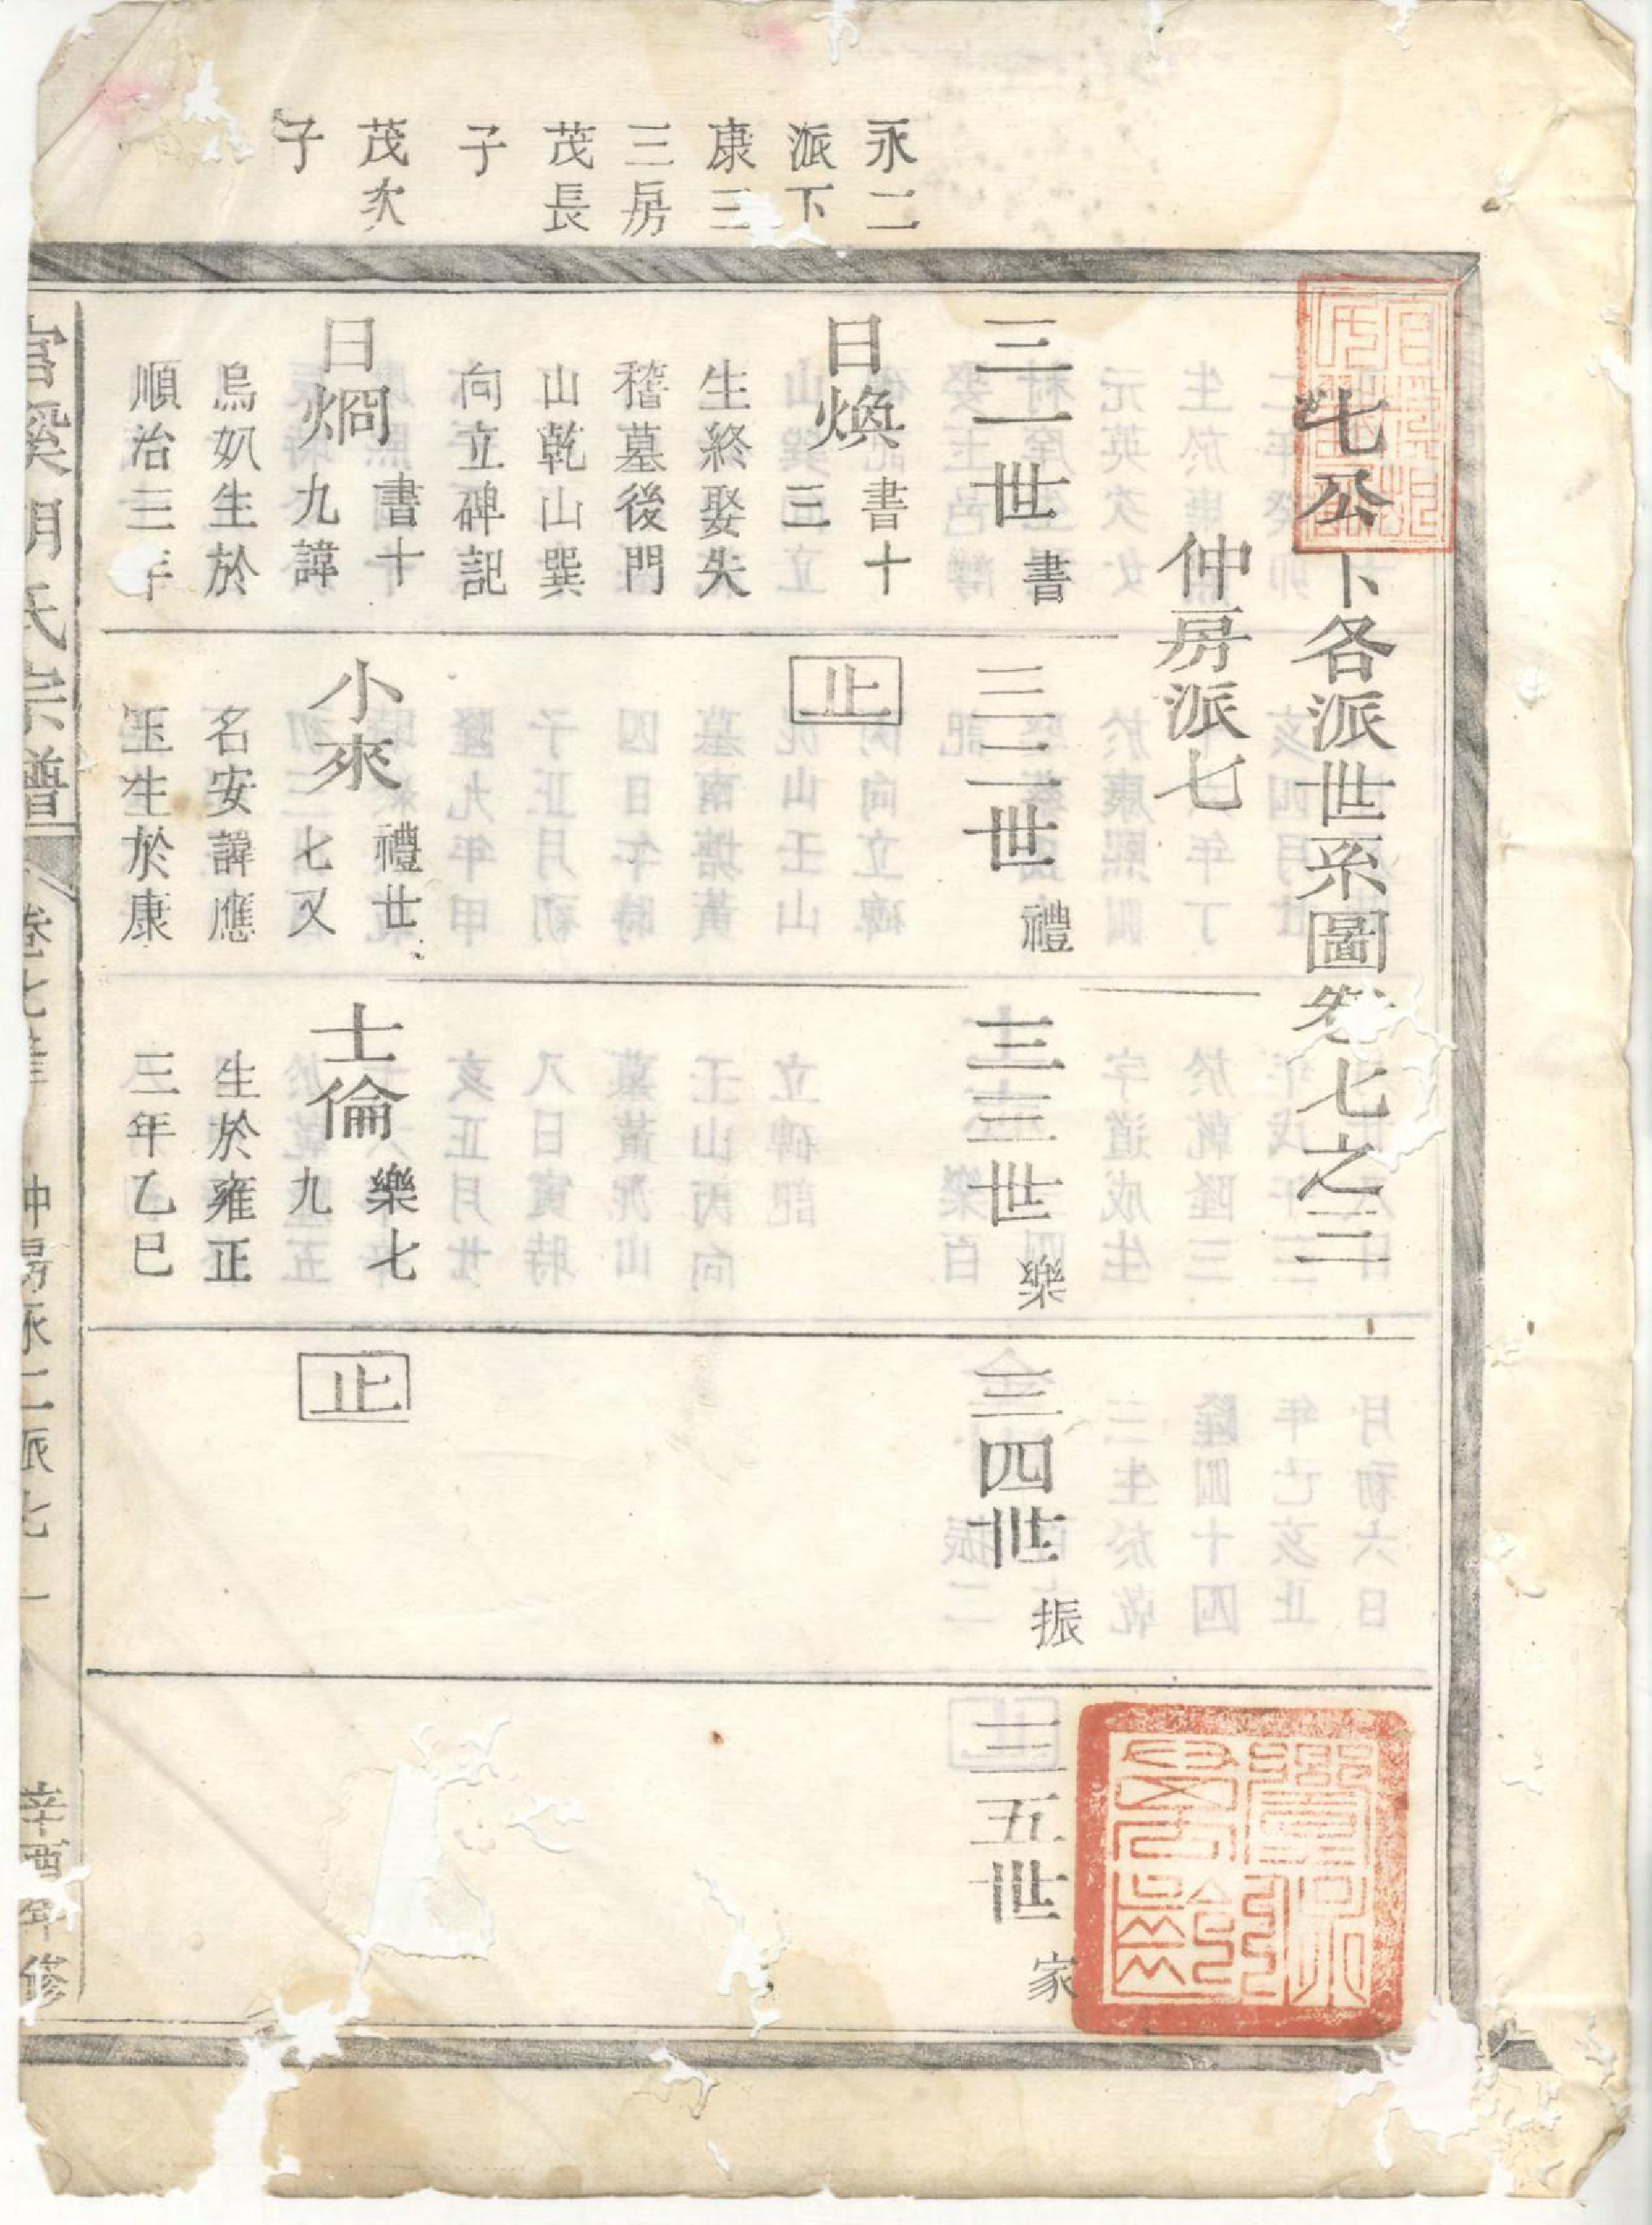 永二
派下
康三
三房
茂長
子
茂次
子
七公下各派世系圖卷七之三
仲房派七
三一世 書
三二世 禮
三三世 樂
三四世 振
三五世 家
日煥 書十
三
生終娶失
稽墓後門
山乾山巽
向立碑記
止
日烱 書十
九諱
烏奴生於
順治三年
小來 禮廿
七又
名安諱應
玉生於康
士倫 樂七
九
生於雍正
三年乙巳
止
宗譜
仲房永二派七 一
辛酉年修